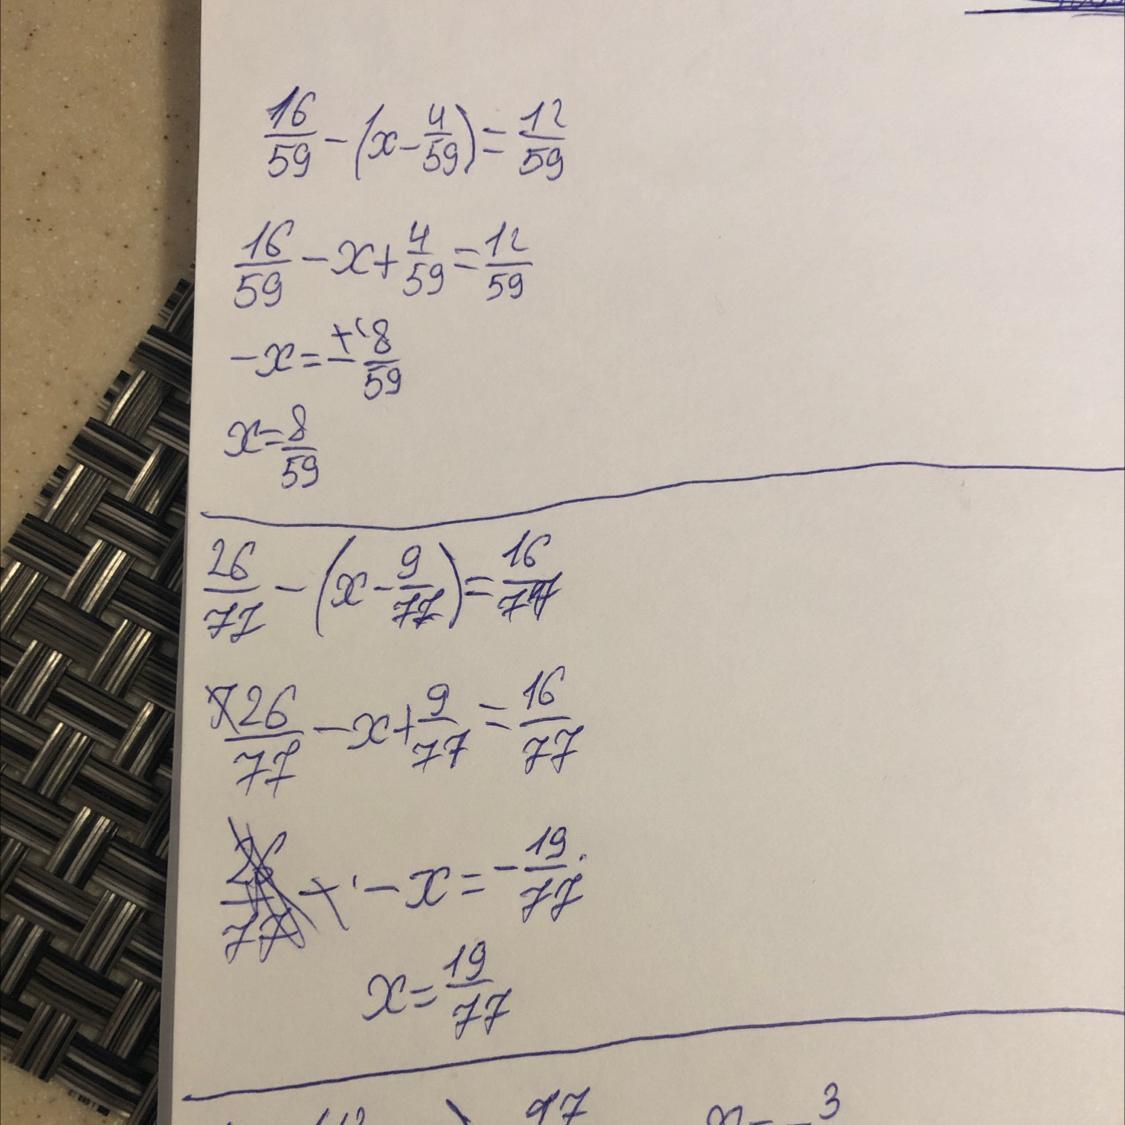 16/59 - (x - 4/59) = 12/59
16/59 - x + 4/59 = 12/59
-x = - 8/59
x = 8/59
26/77 - (x - 9/77) = 16/77
26/77 - x + 9/77 = 16/77
- x = - 19/77
x = 19/77